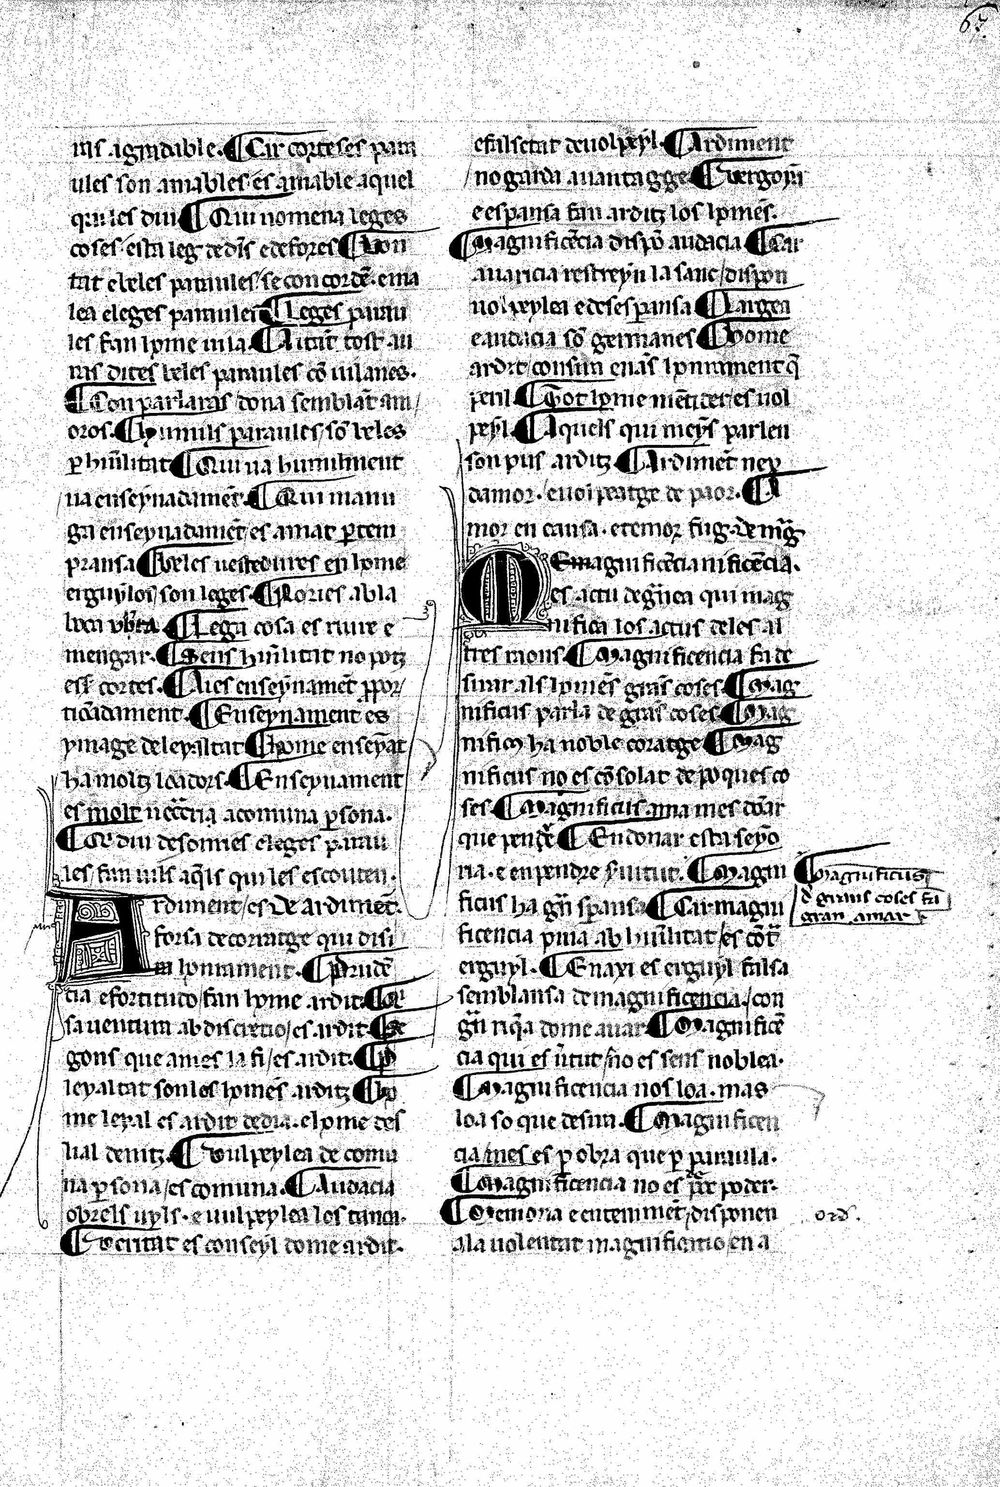 ¶ Car corteses para
ules son amables es amable aquel
qui les diu ¶ Qui nomena leges
coses esta leg dedĩs e defores ¶ Bon
tat e beles paraules se concordẽ. e ma
lea e leges paraules ¶ Leges parau
les fan home uila ¶ Aitãt tost au
ras dites beles paraules cõ uilanes.
¶ Con parlaras dona semblãt am
oros. ¶ Humils paraules sõ beles
ꝑ hũilitat ¶ Qui ua humilment
ua enseynadamẽt. ¶ Qui maniu
ga enseynadamẽt es amat ꝑ tem
pransa ¶ Beles uestedures en home
erguylos son leges. ¶ No ries ab la
boca uberta ¶ Lega cosa es riure e
mengar. ¶ Sens hũilitat no potz
cortes. ¶ Aies enseynamẽt ꝓpor
ticõadament. ¶ Enseynament es
ymage de leyaltat ¶ Home enseyat
ha moltz loadors. ¶ Enseynament
es molt necc̃ari a comuna ꝑsona.
¶ Qui diu desonries e leges parau
les / fan uils aq̃ls qui les escouten.
Ardiment / es De ardimẽt.
forsa de coratge qui desi
ra honrament. ¶ Prudẽ
cia e fortitudo / fan home ardit ¶ Qi
sa uentura ab discretio / es ardit. ¶ Se
gons que ames la fi / es ardit. ¶ Per
leyaltat son los homẽs arditz ¶ Ho
me leyal es ardit de dia. e home des
lial de nitz. ¶ Uulpeylea de comu
na ꝑsona / es comuna. ¶ Audacia
obre ls uyls. e uulpeylea los tanca.
¶ Ueritat es conseyl dome ardit.
e falsetat de uolpeyl. ¶ Ardiment
no garda auantagge ¶ Uergoya
e espansa fan arditz los homẽs.
¶ Magnificẽcia dispõ audacia ¶ Car
auaricia restreyn la sanc / dispon
uolpeylea e desesperansa ¶ Largea
e audacia sõ germanes ¶ Home
ardit consira enãs honrament q̃
peril ¶ Tot home mẽtider / es uol
peyl. ¶ Aquels qui meyns parlen
son pus arditz ¶ Ardimẽt nex
damor. e uolpeatge de paor. ¶ A
mor en causa. e temor fug. De mag̃
Magnificẽcia nificẽcia.
es actu de gran̄ea qui mag
nifica los actus de les al
tres raons ¶ Magnificencia fa de
sirar als homẽs grãs coses ¶ Mag
nificus parla de grãs coses ¶ Mag
nificus ha noble coratge ¶ Mag
nificus no es cõsolat de poques co
ses. ¶ Magnificus ama mes dõar
que penꝺre ¶ En donar esta seyo
ria. e en pendre s̃uitut. ¶ Magni
ficus ha grã spansa ¶ Car magni
ficencia priua ab hũilitat / es cõtra
erguyl. ¶ Enaxi es erguyl falsa
semblansa de magnificencia. con
grã riq̃a dome auar ¶ Magnificẽ
cia qui es ũtut / no es sens noblea.
¶ Magnificencia nos loa. mas
loa so que desira. ¶ Magnificen
cia / mes es ꝑ obra que ꝑ paraula.
¶ Magnificencia no es paor poder.
¶ Memoria e entenimẽt / disponen
a la uolentat magnificatio / en a
¶ Magnificus
d grans coses fa
gran amar
ord.